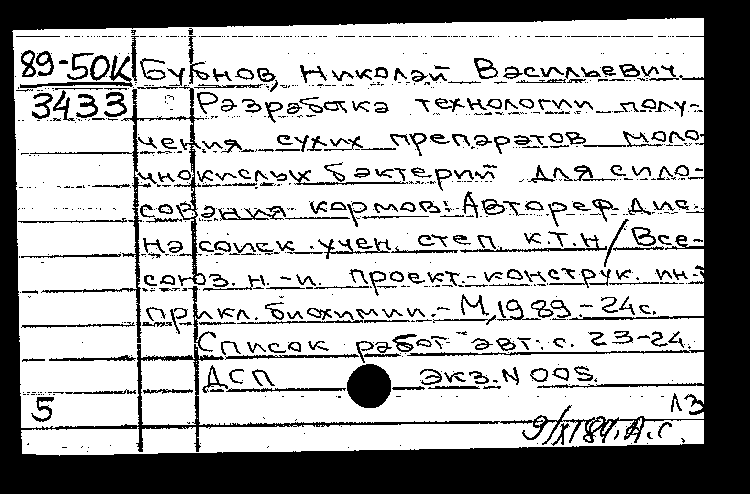 89-50К Бубнов, Николай Васильевич.
3433 Разработка технологии полу-
чения сухих препаратов моло-
чнокислых бактерий для сило-
сования кормов: Автореф. дис.
на соиск. учен. степ. к.т.н. / Все-
союз. н.-и. проект.-конструк. ин.т
прикл. биохимии. - М., 1989. - 24 с.
Список работ авт.: с. 23-24.
ДСП экз. N 005.
5 13
9/XI 89. А.С.